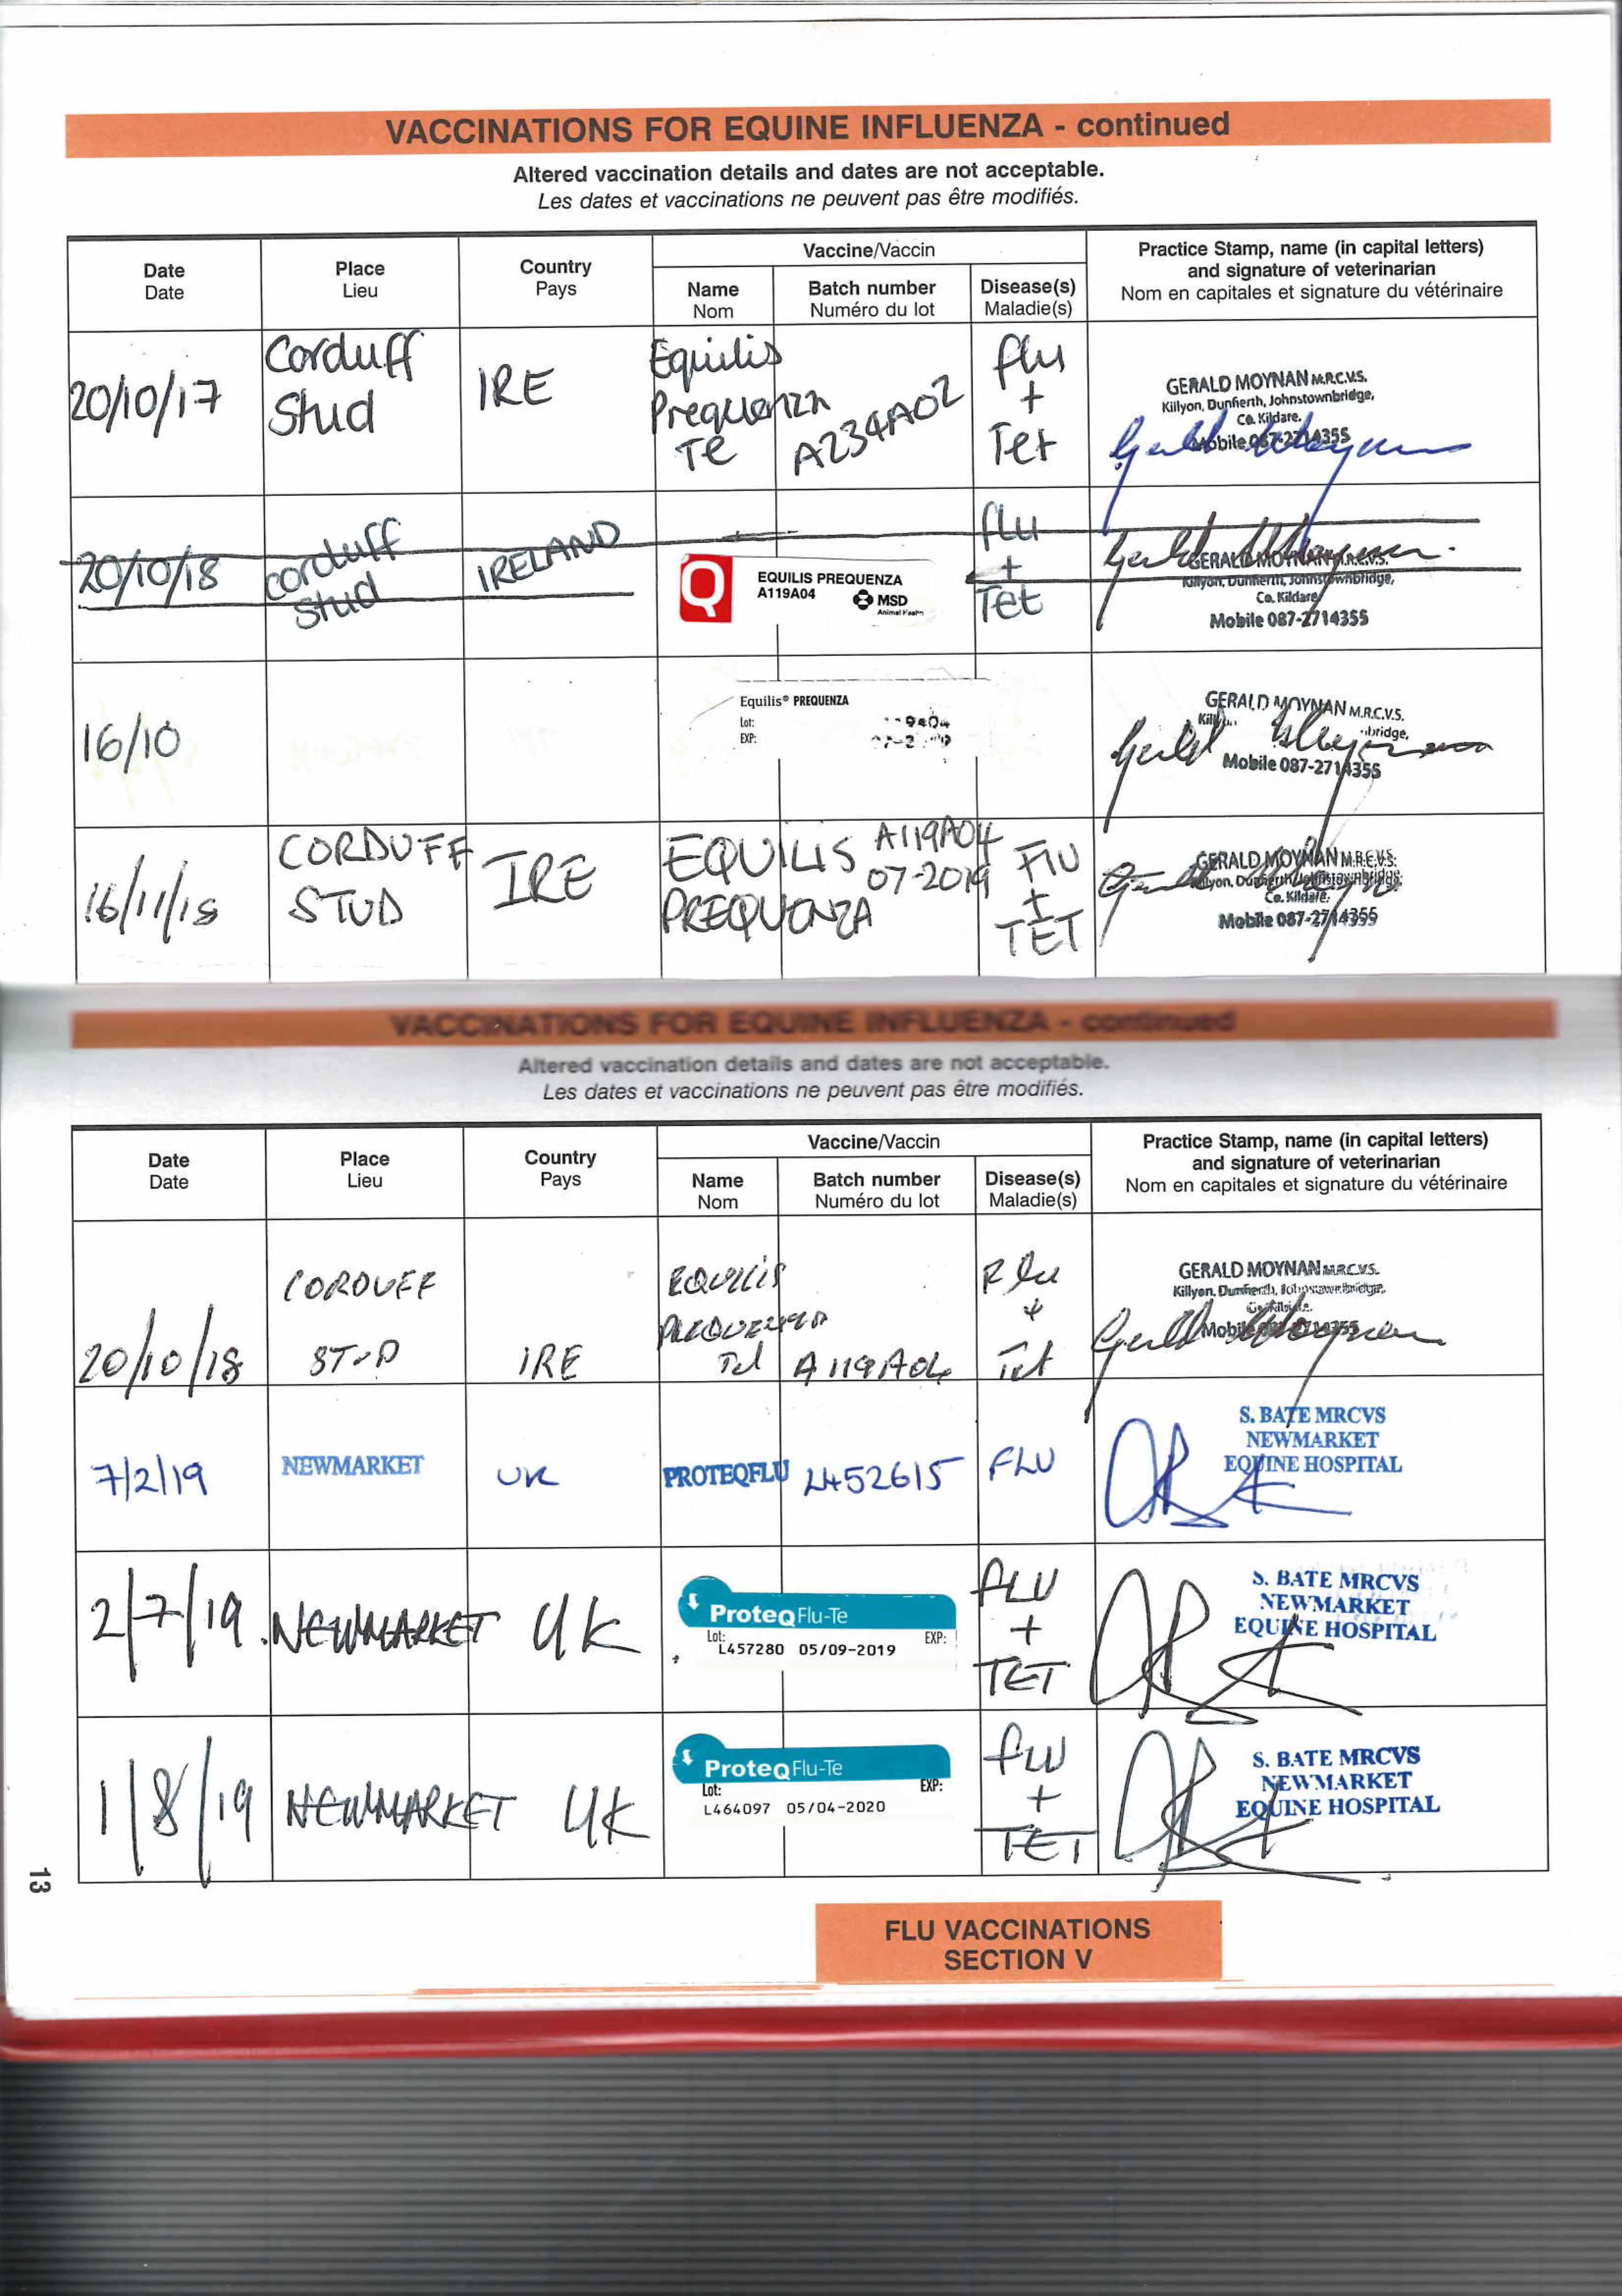 VACCINATIONS FOR EQUINE INFLUENZA - continued
Altered vaccination details and dates are not acceptable.
Les dates et vaccinations ne peuvent pas être modifiés.
Date
Date
Place
Lieu
Country
Pays
Vaccine/Vaccin
Name
Nom
Batch number
Numéro du lot
Disease(s)
Maladie(s)
Practice Stamp, name (in capital letters)
and signature of veterinarian
Nom en capitales et signature du vétérinaire
20/10/17
Corduff
Stud
IRE
Equilis
Prequenza
Te
A234A02
flu
+
Tet
GERALD MOYNAN M.R.C.V.S.
Killyon, Dunfierth, Johnstownbridge,
Co. Kildare.
Mobile 087-2714355
20/10/18
corduff
stud
IRELAND
Q
EQUILIS PREQUENZA
A119A04
MSD
Animal Health
flu
+
Tet
GERALD MOYNAN M.R.C.V.S.
Killyon, Dunfierth, Johnstownbridge,
Co. Kildare
Mobile 087-2714355
16/10
Equilis® PREQUENZA
Lot:
EXP:
GERALD MOYNAN M.R.C.V.S.
bridge,
Mobile 087-2714355
16/11/18
CORDUFF
STUD
IRE
EQUILIS
PREQUENZA
A119A04
07-2019
FLU
+
TET
GERALD MOYNAN M.R.C.V.S.
Killyon, Dunfierth, Johnstownbridge,
Co. Kildare.
Mobile 087-2714355
VACCINATIONS FOR EQUINE INFLUENZA - continued
Altered vaccination details and dates are not acceptable.
Les dates et vaccinations ne peuvent pas être modifiés.
Date
Date
Place
Lieu
Country
Pays
Vaccine/Vaccin
Name
Nom
Batch number
Numéro du lot
Disease(s)
Maladie(s)
Practice Stamp, name (in capital letters)
and signature of veterinarian
Nom en capitales et signature du vétérinaire
20/10/18
CORDUFF
STUD
IRE
EQUILIS
PREQUENZA
Tet
A119A04
Flu
+
Tet
GERALD MOYNAN M.R.C.V.S.
Killyon, Dunfierth, Johnstownbridge,
Co. Kildare.
Mobile 087-2714355
7/2/19
NEWMARKET
UK
PROTEQFLU
L452615
FLU
S. BATE MRCVS
NEWMARKET
EQUINE HOSPITAL
2/7/19
NEWMARKET
UK
ProteqFlu-Te
Lot:
EXP:
L457280 05/09-2019
FLU
+
TET
S. BATE MRCVS
NEWMARKET
EQUINE HOSPITAL
1/8/19
NEWMARKET
UK
ProteqFlu-Te
Lot:
EXP:
L464097 05/04-2020
FLU
+
TET
S. BATE MRCVS
NEWMARKET
EQUINE HOSPITAL
13
FLU VACCINATIONS
SECTION V